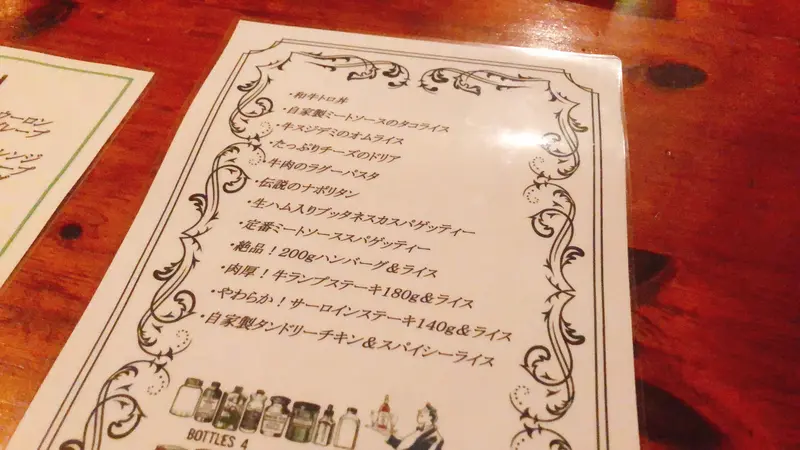 ・和牛トロ丼
・自家製ミートソースのタコライス
・牛スジデミのオムライス
・たっぷりチーズのドリア
・牛肉のラグーパスタ
・伝説のナポリタン
・生ハム入りプッタネスカスパゲッティー
・定番ミートソーススパゲッティー
・絶品！200gハンバーグ＆ライス
・肉厚！牛ランプステーキ180g＆ライス
・やわらか！サーロインステーキ140g＆ライス
・自家製タンドリーチキン＆スパイシーライス
BOTTLES 4